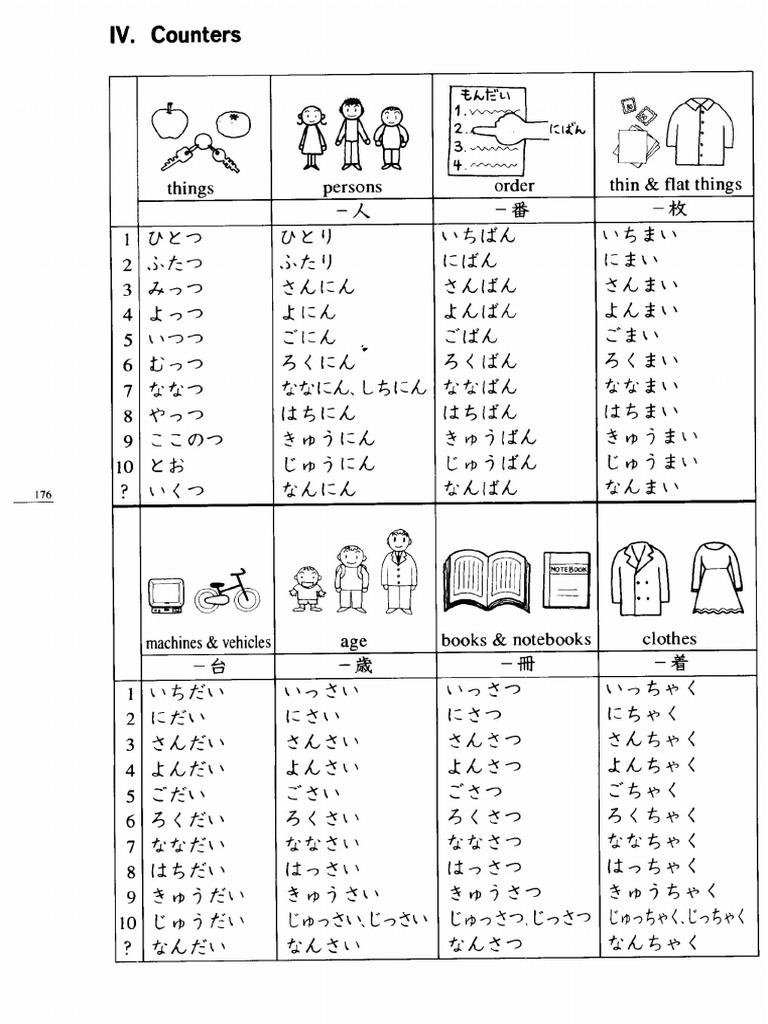 IV. Counters
もんだい
1.
2.
3.
4.
にばん
things persons order thin & flat things
－人 －番 －枚
1 ひとつ ひとり いちばん いちまい
2 ふたつ ふたり にばん にまい
3 みっつ さんにん さんばん さんまい
4 よっつ よにん よんばん よんまい
5 いつつ ごにん ごばん ごまい
6 むっつ ろくにん ろくばん ろくまい
7 ななつ ななにん、しちにん ななばん ななまい
8 やっつ はちにん はちばん はちまい
9 ここのつ きゅうにん きゅうばん きゅうまい
10 とお じゅうにん じゅうばん じゅうまい
? いくつ なんにん なんばん なんまい
176
NOTEBOOK
machines & vehicles age books & notebooks clothes
－台 －歳 －冊 －着
1 いちだい いっさい いっさつ いっちゃく
2 にだい にさい にさつ にちゃく
3 さんだい さんさい さんさつ さんちゃく
4 よんだい よんさい よんさつ よんちゃく
5 ごだい ごさい ごさつ ごちゃく
6 ろくだい ろくさい ろくさつ ろくちゃく
7 ななだい ななさい ななさつ ななちゃく
8 はちだい はっさい はっさつ はっちゃく
9 きゅうだい きゅうさい きゅうさつ きゅうちゃく
10 じゅうだい じゅっさい、じっさい じゅっさつ、じっさつ じゅっちゃく、じっちゃく
? なんだい なんさい なんさつ なんちゃく